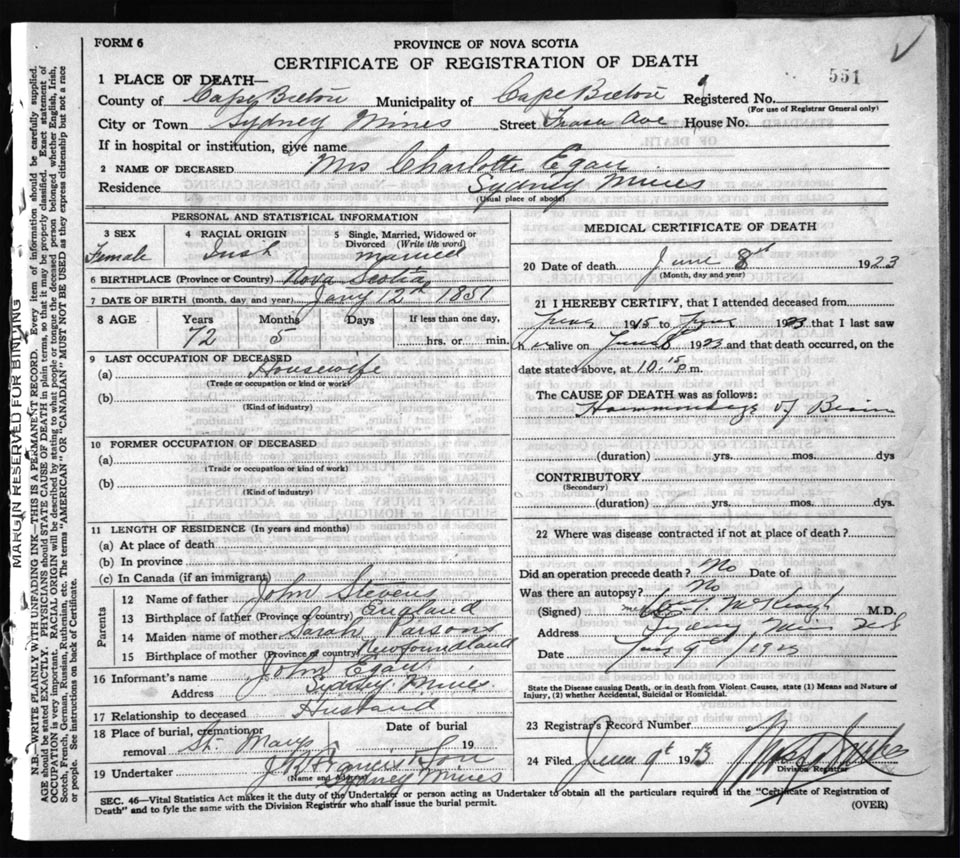 FORM 6
PROVINCE OF NOVA SCOTIA
CERTIFICATE OF REGISTRATION OF DEATH
551
1 PLACE OF DEATH—
County of Cape Breton Municipality of Cape Breton Registered No.
(For use of Registrar General only)
City or Town Sydney Mines Street Fraser Ave House No.
If in hospital or institution, give name
2 NAME OF DECEASED Mrs Charlotte Egan
Residence Sydney Mines
(Usual place of abode)
PERSONAL AND STATISTICAL INFORMATION
3 SEX 4 RACIAL ORIGIN 5 Single, Married, Widowed or Divorced (Write the word)
Female Irish Married
6 BIRTHPLACE (Province or Country) Nova Scotia
7 DATE OF BIRTH (month, day and year) Jany 12th 1851
8 AGE Years Months Days If less than one day,
72 5 hrs. or min.
9 LAST OCCUPATION OF DECEASED
(a) Housewife
(Trade or occupation or kind or work)
(b)
(Kind of industry)
10 FORMER OCCUPATION OF DECEASED
(a)
(Trade or occupation or kind of work)
(b)
(Kind of industry)
11 LENGTH OF RESIDENCE (In years and months)
(a) At place of death
(b) In province
(c) In Canada (if an immigrant)
Parents
12 Name of father John Stevens
13 Birthplace of father (Province or country) England
14 Maiden name of mother Sarah Parsons
15 Birthplace of mother (Province or country) Newfoundland
16 Informant's name John Egan
Address Sydney Mines
17 Relationship to deceased Husband
18 Place of burial, cremation or removal St. Marys Date of burial 19
19 Undertaker J Francis & Son
(Name and address) Sydney Mines
MEDICAL CERTIFICATE OF DEATH
20 Date of death June 8th 1923
(Month, day and year)
21 I HEREBY CERTIFY, that I attended deceased from
1915 to 1923 that I last saw
h alive on June 8 1923 and that death occurred, on the
date stated above, at 10.15 p.m.
The CAUSE OF DEATH was as follows:
Haemmorhage of Brain
(duration) yrs. mos. dys
CONTRIBUTORY
(Secondary)
(duration) yrs. mos. dys.
22 Where was disease contracted if not at place of death?
Did an operation precede death? No Date of
Was there an autopsy? No
(Signed) McKeough M.D.
Address Sydney Mines
Date 9 1923
State the Disease causing Death, or in death from Violent Causes, state (1) Means and Nature of
Injury, (2) whether Accidental, Suicidal or Homicidal.
23 Registrar's Record Number
24 Filed June 9th 1923
Division Registrar
SEC. 46—Vital Statistics Act makes it the duty of the Undertaker or person acting as Undertaker to obtain all the particulars required in the "Certificate of Registration of
Death" and to fyle the same with the Division Registrar who shall issue the burial permit.
(OVER)
MARGIN RESERVED FOR BINDING
N.B.—WRITE PLAINLY WITH UNFADING INK—THIS IS A PERMANENT RECORD. Every item of information should be carefully supplied.
AGE should be stated EXACTLY. PHYSICIANS should STATE CAUSE OF DEATH in plain terms, so that it may be properly classified. Exact statement of
OCCUPATION is very important. RACIAL ORIGIN will be described by stating to what people or tongue the deceased person belonged whether English, Irish,
Scotch, French, German, Russian, Ruthenian, etc. The terms "AMERICAN" OR "CANADIAN" MUST NOT BE USED as they express citizenship but not a race
or people. See instructions on back of Certificate.